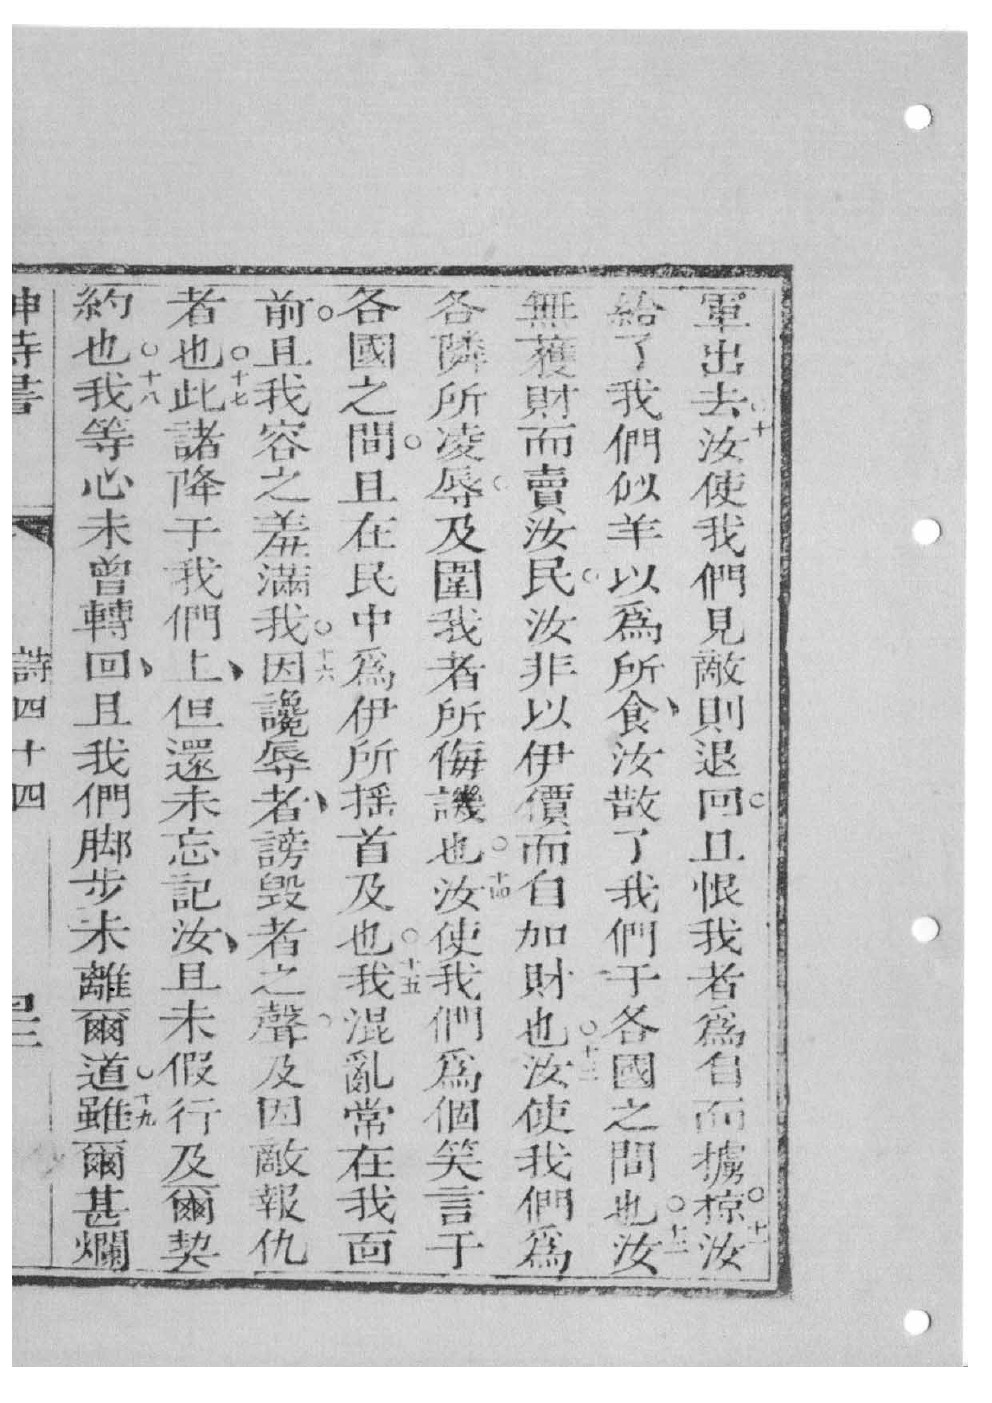 軍出去○十汝使我們見敵則退回○且恨我者爲自而擄掠○十一汝
給了我們似羊以爲所食、汝散了我們于各國之間也○十二汝
無獲財而賣汝民○汝非以伊價而自加財也○十三汝使我們爲
各隣所凌辱○及圍我者所侮譏也○十四汝使我們爲個笑言于
各國之間○且在民中爲伊所揺首及也○十五我混亂常在我面
前○且我容之羞滿我○十六因讒辱者、謗毀者之聲○及因敵報仇
者也○十七此諸降于我們上、但還未忘記汝、且未假行及爾契
約也○十八我等心未曾轉回、且我們脚步未離爾道○十九雖爾甚爛
神詩書 詩四十四